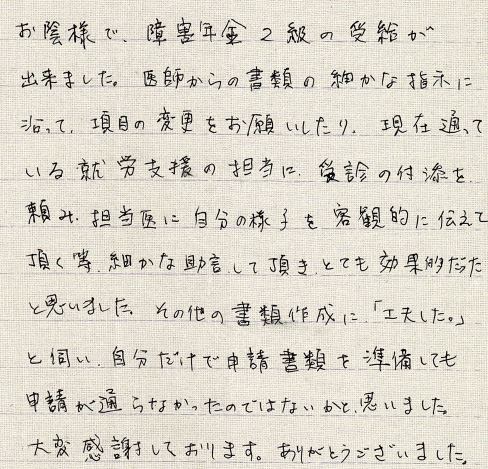 お陰様で、障害年金2級の受給が
出来ました。医師からの書類の細かな指示に
沿って、項目の変更をお願いしたり、現在通って
いる就労支援の担当に、受診の付添を
頼み、担当医に自分の様子を客観的に伝えて
頂く等、細かな助言して頂き、とても効果的だった
と思いました。その他の書類作成に「工夫した。」
と伺い、自分だけで申請書類を準備しても
申請が通らなかったのではないかと、思いました。
大変感謝しております。ありがとうございました。